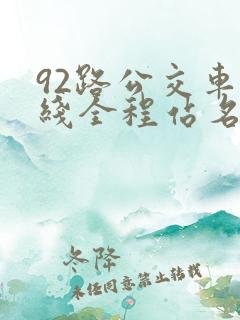 92路公交車
綫全程佔名
冬降
未经同意禁止转载